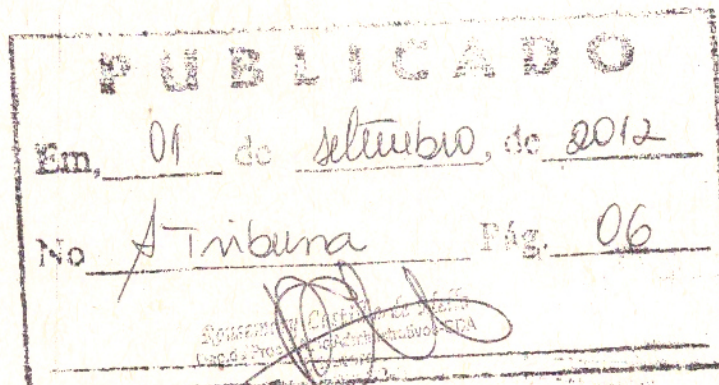 PUBLICADO
Em, 01 de setembro, de 2012
No A Tribuna Pág. 06